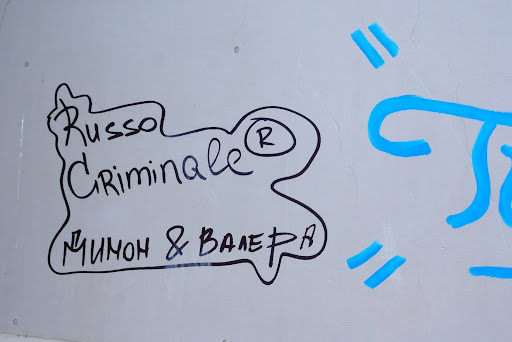 Russo
Criminale ®
Тимон & ВАЛЕРА